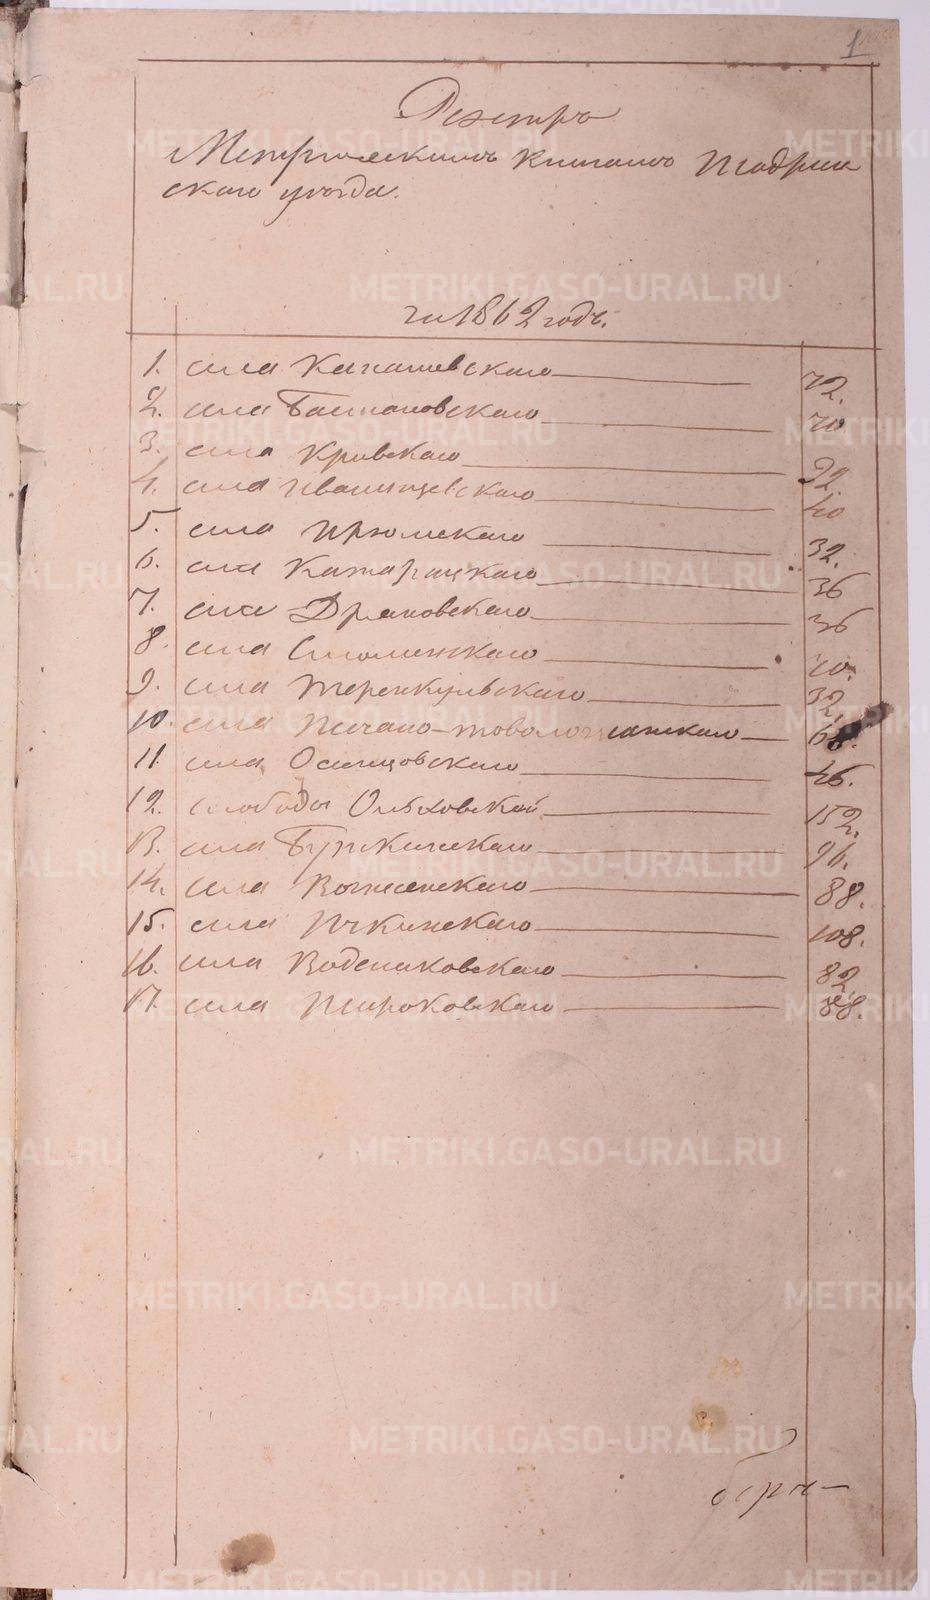 1
Реэстръ
Метрическимъ книгамъ Шадрин
скаго уѣзда.
за 1862 годъ.
1. села Канашевскаго 72.
2. села Батмановскаго 70
3. села Кривскаго 92.
4. села Иванищевскаго 40
5. села Ирюмскаго 32.
6. села Катарацкаго 36
7. села Драновскаго 36
8. села Смолинскаго
9. села Теренкульскаго 32.
10. села Песчано-товолжанскаго 68.
11. села Осинцовскаго 46.
12. слободы Ольховской 152.
13. села Буткинскаго 96.
14. села Вознесенскаго 88.
15. села Ичкинскаго 108.
16. села Водениковскаго 82
17. села Широковскаго 88.
METRIKI.GASO-URAL.RU